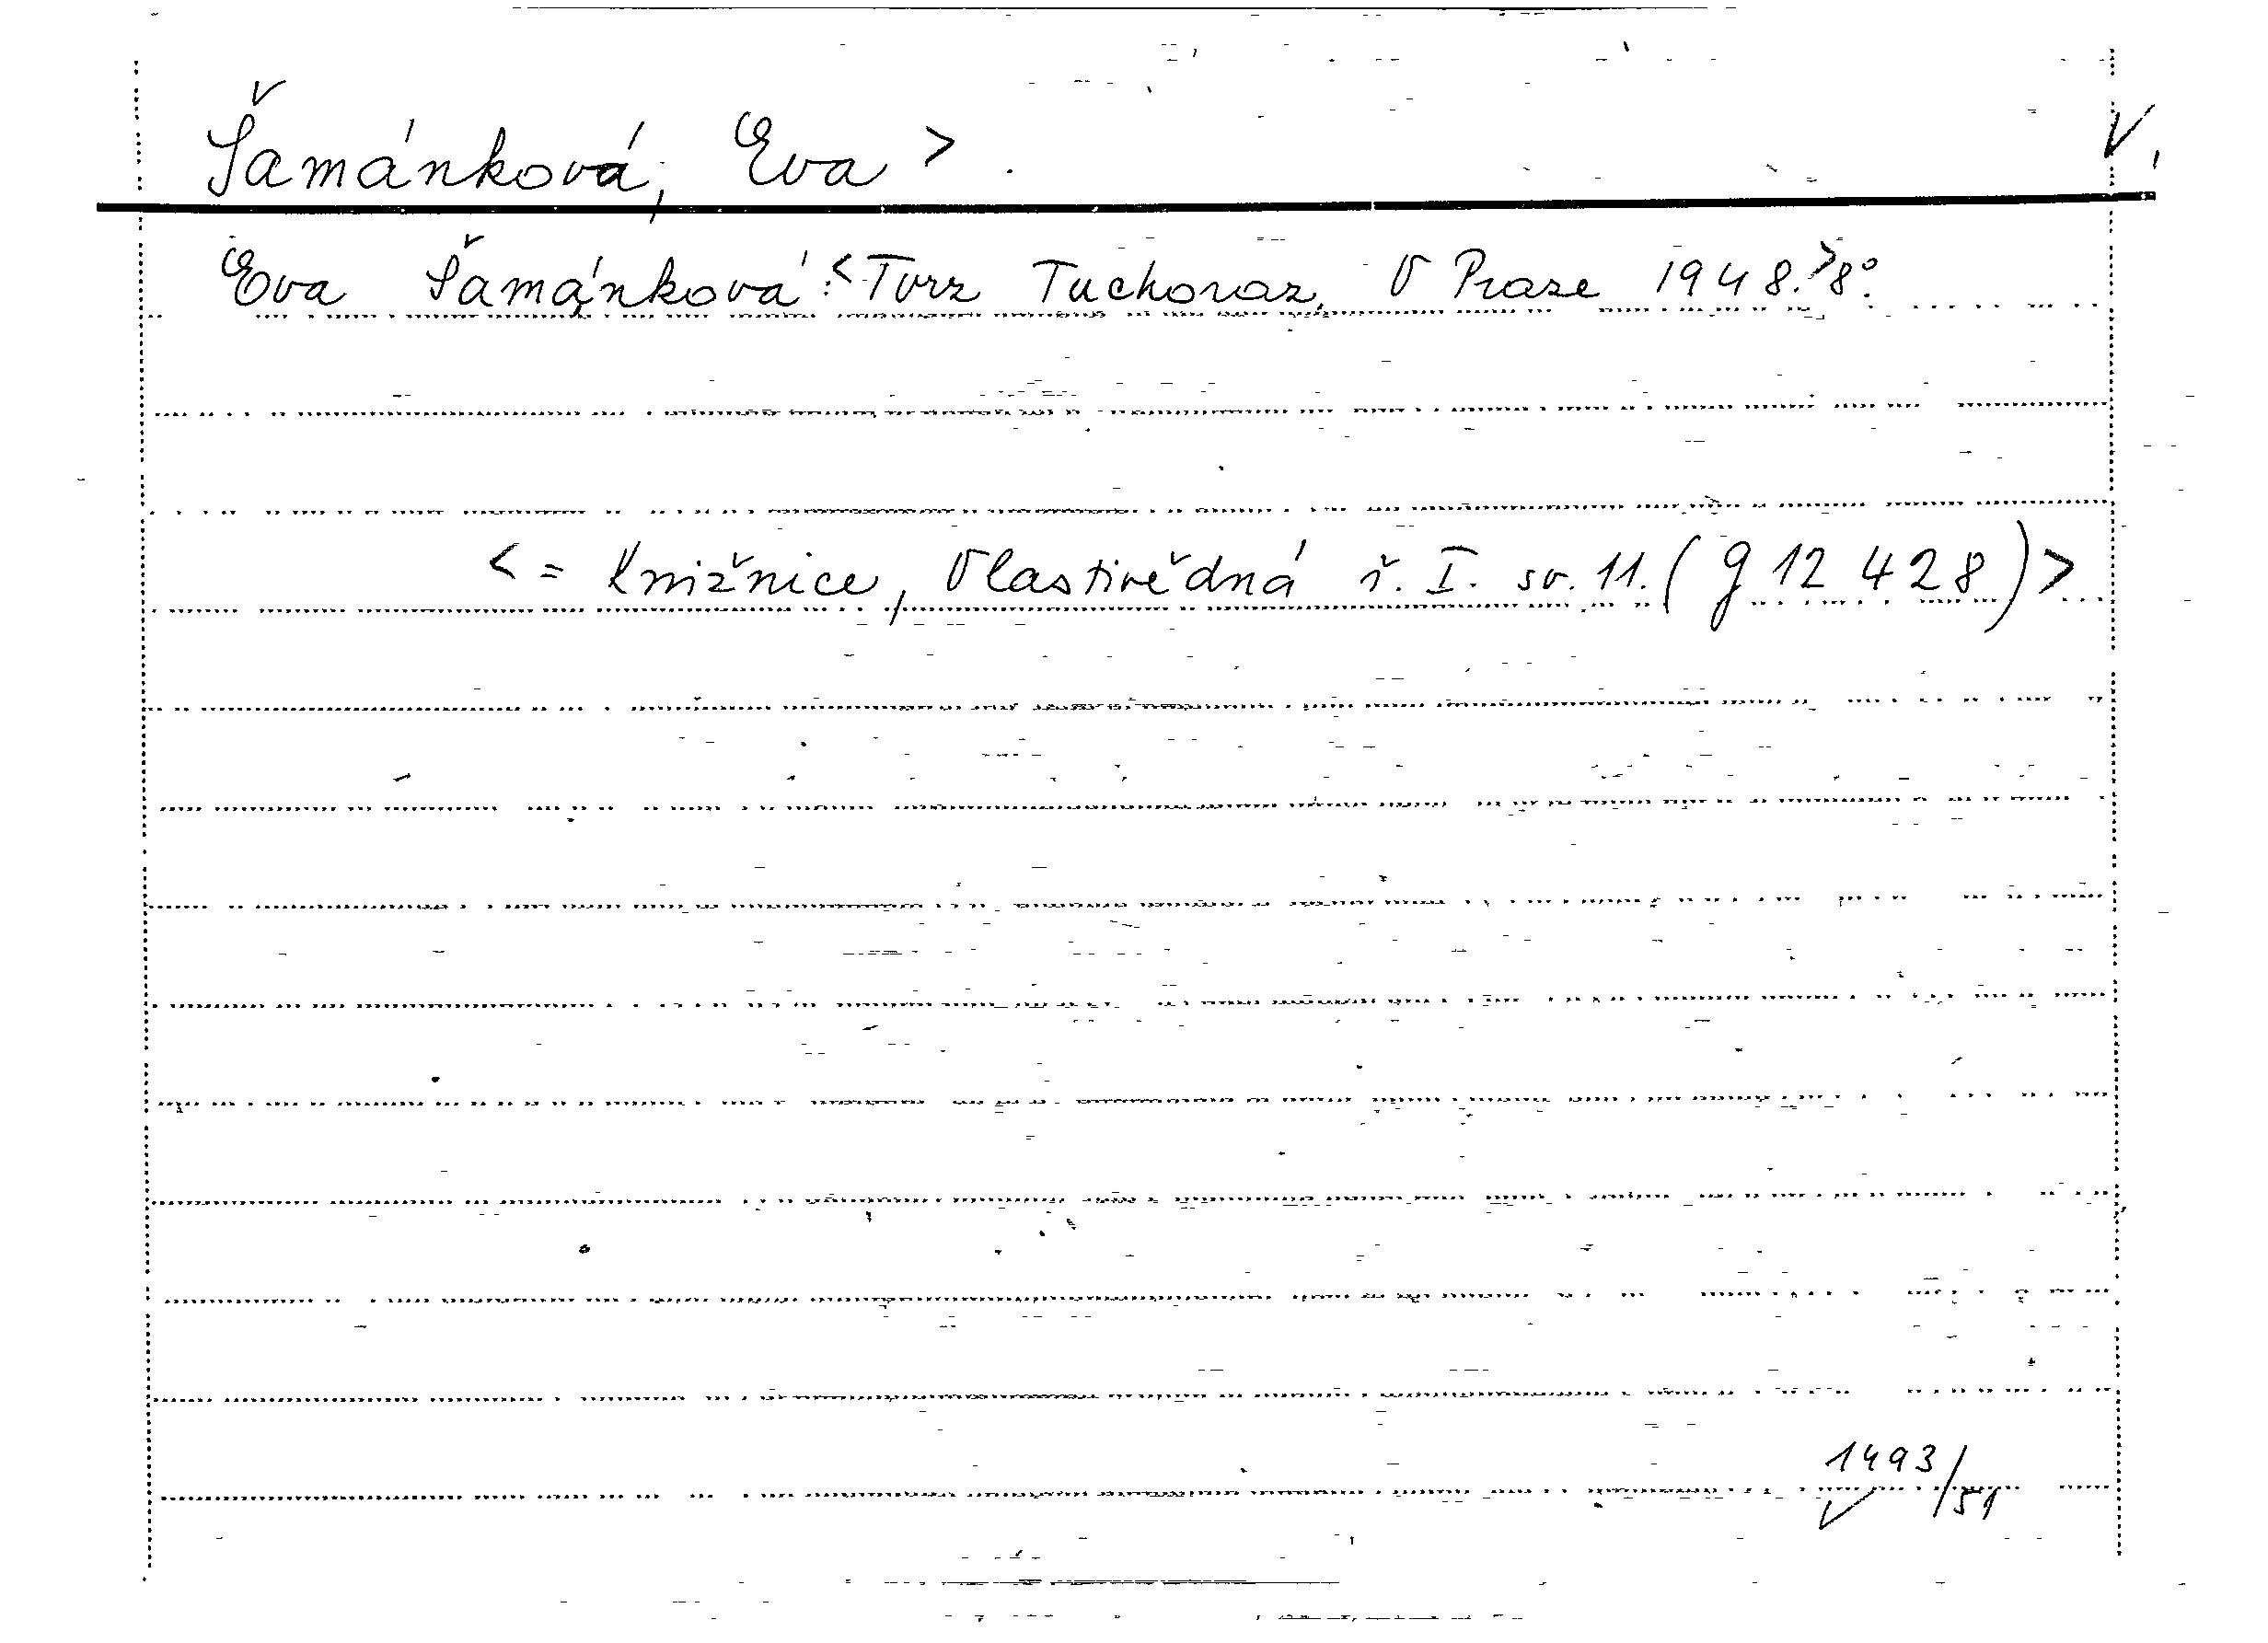 Šamánková, Eva > V
Eva Šamánková: <Tvrz Tuchoraz, V Praze 1948.> 8°.
<= Knižnice, Vlastivědná ř. I. sv. 11. (g 12 428)>
1493/51